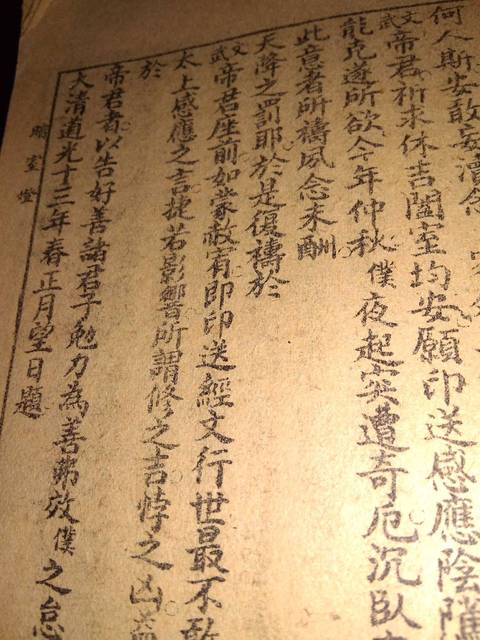 何人斯安敢妄瀆念
文武帝君祈求休吉闔室均安願印送感應陰隲
能克遂所欲今年仲秋僕夜起突遭奇厄沉臥
此意者所禱夙念未酬
天降之罰耶於是復禱於
文武帝君座前如蒙赦宥即印送經文行世最不敢
太上感應之言捷若影響所謂修之吉悖之凶
於
帝君者以告好善諸君子勉力為善弗效僕之怠
大清道光十三年春正月望日題